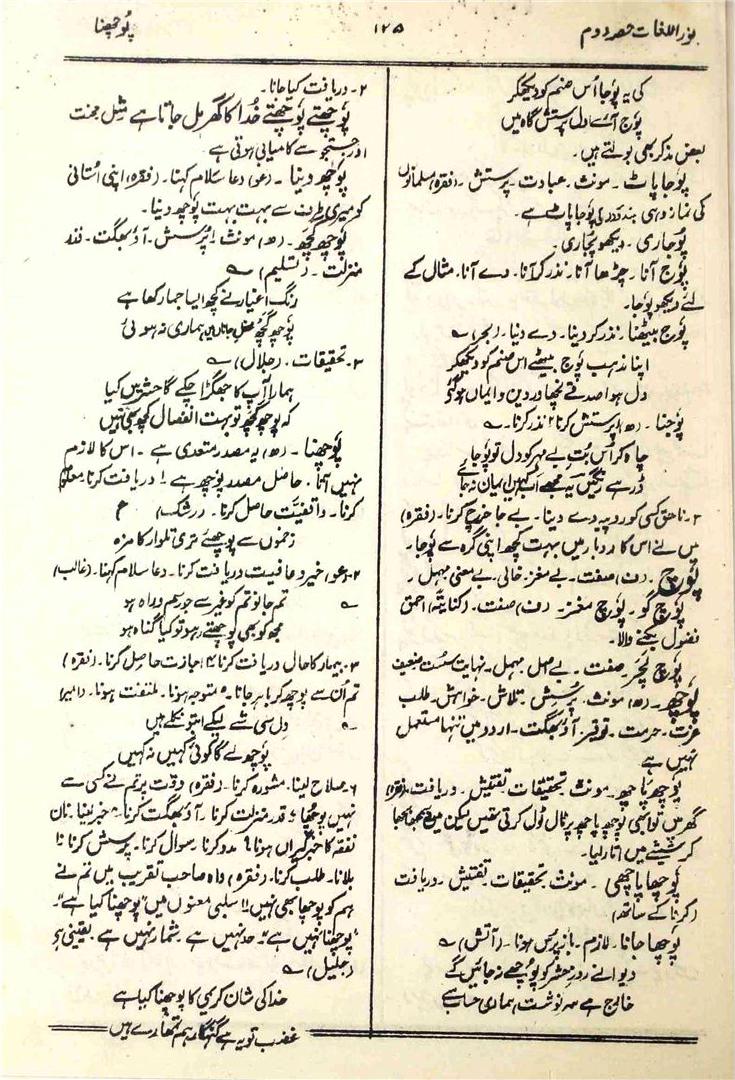 نور اللغات حصہ دوم
۱۲۵
پوچھنا
کی یہ پوجا اُس صنم کو دیکھکر
پوج آئے دل پرستش گاہ میں
بعض مذکر بھی بولتے ہیں۔
پوجا پاٹ ۔ مونث۔ عبادت۔ پرستش ۔ (فقرہ) مسلمانوں
کی نماز وہی ہندو پوجا پاٹ ہے۔
پوجاری ۔ دیکھو پُجاری۔
پوج آنا ۔ چڑھا آنا۔ نذر کر آنا۔ دے آنا۔ مثال کے
لئے دیکھو پوجا۔
پوج بیٹھنا ۔ نذر کر دینا۔ دے دینا۔ (بحر) ؎
اپنا مذہب پوج بیٹھے اس صنم کو دیکھکر
دل ہوا صدقے نچھاور دین و ایماں ہو گئے
پوجنا ۔ (ھ) ۱ پرستش کرنا ۲ نذر کرنا۔ ؎
چاہ کر اُس بُتِ بے مہر کو دل تو پوجا
ڈر ہے مجھے اب کہیں ایمان نہ جائے
۳۔ ناحق کسی کو روپیہ دے دینا۔ بے جا خرچ کرنا۔ (فقرہ)
میں نے اس کاروبار میں بہت کچھ اپنی گرہ سے پوجا۔
پوچ ۔ (ف) صفت۔ بے مغز۔ خالی۔ بے معنی مہمل۔
پوچ گو ۔ پوچ مغز۔ (ف) صفت۔ (کنایتہً) احمق
فضول بکنے والا۔
پوچ لچر ۔ صفت۔ بے اصل۔ مہمل۔ نہایت سست ضعیف
پوچھ ۔ (ھ) مونث۔ پرسش۔ تلاش۔ خواہش۔ طلب
عزت۔ حرمت۔ توقیر۔ آؤ بھگت۔ اردو میں تنہا مستعمل
نہیں ہے
پوچھ پاچھ ۔ مونث۔ تحقیقات۔ تفتیش۔ دریافت (فقرہ)
گھر میں تو اسی پوچھ پاچھ پر ٹال ٹول کرتی تھیں لیکن میں
کر شیشے میں اُتار لیا۔
پوچھا پاچھی ۔ مونث۔ تحقیقات۔ تفتیش۔ دریافت
(کرنا کے ساتھ)
پوچھا جانا۔ لازم۔ بازپرس ہونا۔ (آتش) ؎
دیوانے روزِ محشر کو پوچھے نہ جائیں گے
خارج ہے سرنوشت ہماری حساب سے
۲۔ دریافت کیا جانا۔
پوچھتے پوچھتے خُدا کا گھر مل جاتا ہے مثل محنت
اور جستجو سے کامیابی ہوتی ہے
پوچھ دینا ۔ (عو) دعا سلام کہنا۔ (فقرہ) اپنی اُستانی
کو میری طرف سے بہت بہت پوچھ دینا۔
پوچھ گچھ ۔ (ھ) مونث ۱ پُرسش۔ آؤ بھگت۔ قدر
منزلت ۔ (تسلیم) ؎
رنگ اغیار نے کچھ ایسا جما رکھا ہے
پوچھ گچھ محفل جاناں میں ہماری نہ ہوئی
۲۔ تحقیقات۔ (جلال) ؎
ہمارا آپ کا جھگڑا چُکے گا حشر میں کیا
کہ پوچھ گچھ تو بہت انفصال کچھ بھی نہیں
پوچھنا ۔ (ھ) یہ مصدر متعدی ہے۔ اس کا لازم
نہیں آتا۔ حاصل مصدر پوچھ ہے ۱ دریافت کرنا۔ معلوم
کرنا۔ واقفیت حاصل کرنا۔ (رشک) ع
زخموں سے پوچھئے تری تلوار کا مزہ
۲۔ (عو) خیر و عافیت دریافت کرنا۔ دعا سلام کہنا۔ (غالب)
؎ تم جانو تم کو غیر سے جو رسم و راہ ہو
مجھ کو بھی پوچھتے رہو تو کیا گناہ ہو
۳۔ بیمار کا حال دریافت کرنا ۴ اجازت حاصل کرنا۔ (فقرہ)
تم اُن سے پوچھ کر باہر جانا ۵ متوجہ ہونا۔ ملتفت ہونا۔ (امیر)
؎ دل سی شے لیکے امتو نکلے ہیں
پوچھو لے گا کوئی کہیں نہ کہیں
۶ صلاح لینا۔ مشورہ کرنا۔ (فقرہ) وقت پر تم نے کسی سے
نہیں پوچھا ۷ قدر منزلت کرنا۔ آؤ بھگت کرنا۔ ۸ خبر لینا۔ نان
نفقہ کا خبر گیراں ہونا ۹ مدد کرنا۔ سوال کرنا۔ پرسش کرنا ۱۰
بلانا۔ طلب کرنا۔ (فقرہ) واہ صاحب تقریب میں تم نے
ہم کو پوچھا بھی نہیں ۱۱ سلبی معنوں میں "پوچھنا کیا ہے"
"پوچھنا نہیں ہے"۔ حد نہیں ہے۔ شمار نہیں ہے۔ یقینی ہے
(جلیل) ؎
خدا کی شان کریمی کا پوچھنا کیا ہے
غضب تو یہ ہے گنہگار ہم تمھارے ہیں